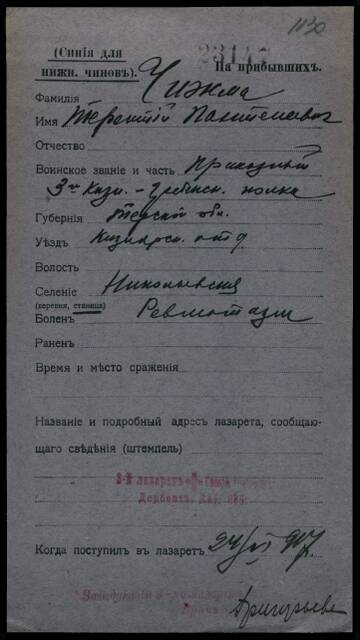 1130
(Синія для
нижн. чиновъ).
На прибывшихъ.
Фамилія Чижма
Имя Терентій Пантелеевич
Отчество
Воинское званіе и часть Приказный
3го Кизл.-Гребенск. полка
Губернія Терской обл.
Уѣздъ Кизлярск. отд
Волость
Селеніе Николаевская
(деревня, станица)
Боленъ Ревматизм
Раненъ
Время и мѣсто сраженія
Названіе и подробный адресъ лазарета, сообщаю-
щаго свѣдѣнія (штемпель)
3-й лазаретъ
Дербентъ, Даг.
Когда поступилъ въ лазаретъ 24/VI 917г.
Завѣдующій
Григорьева